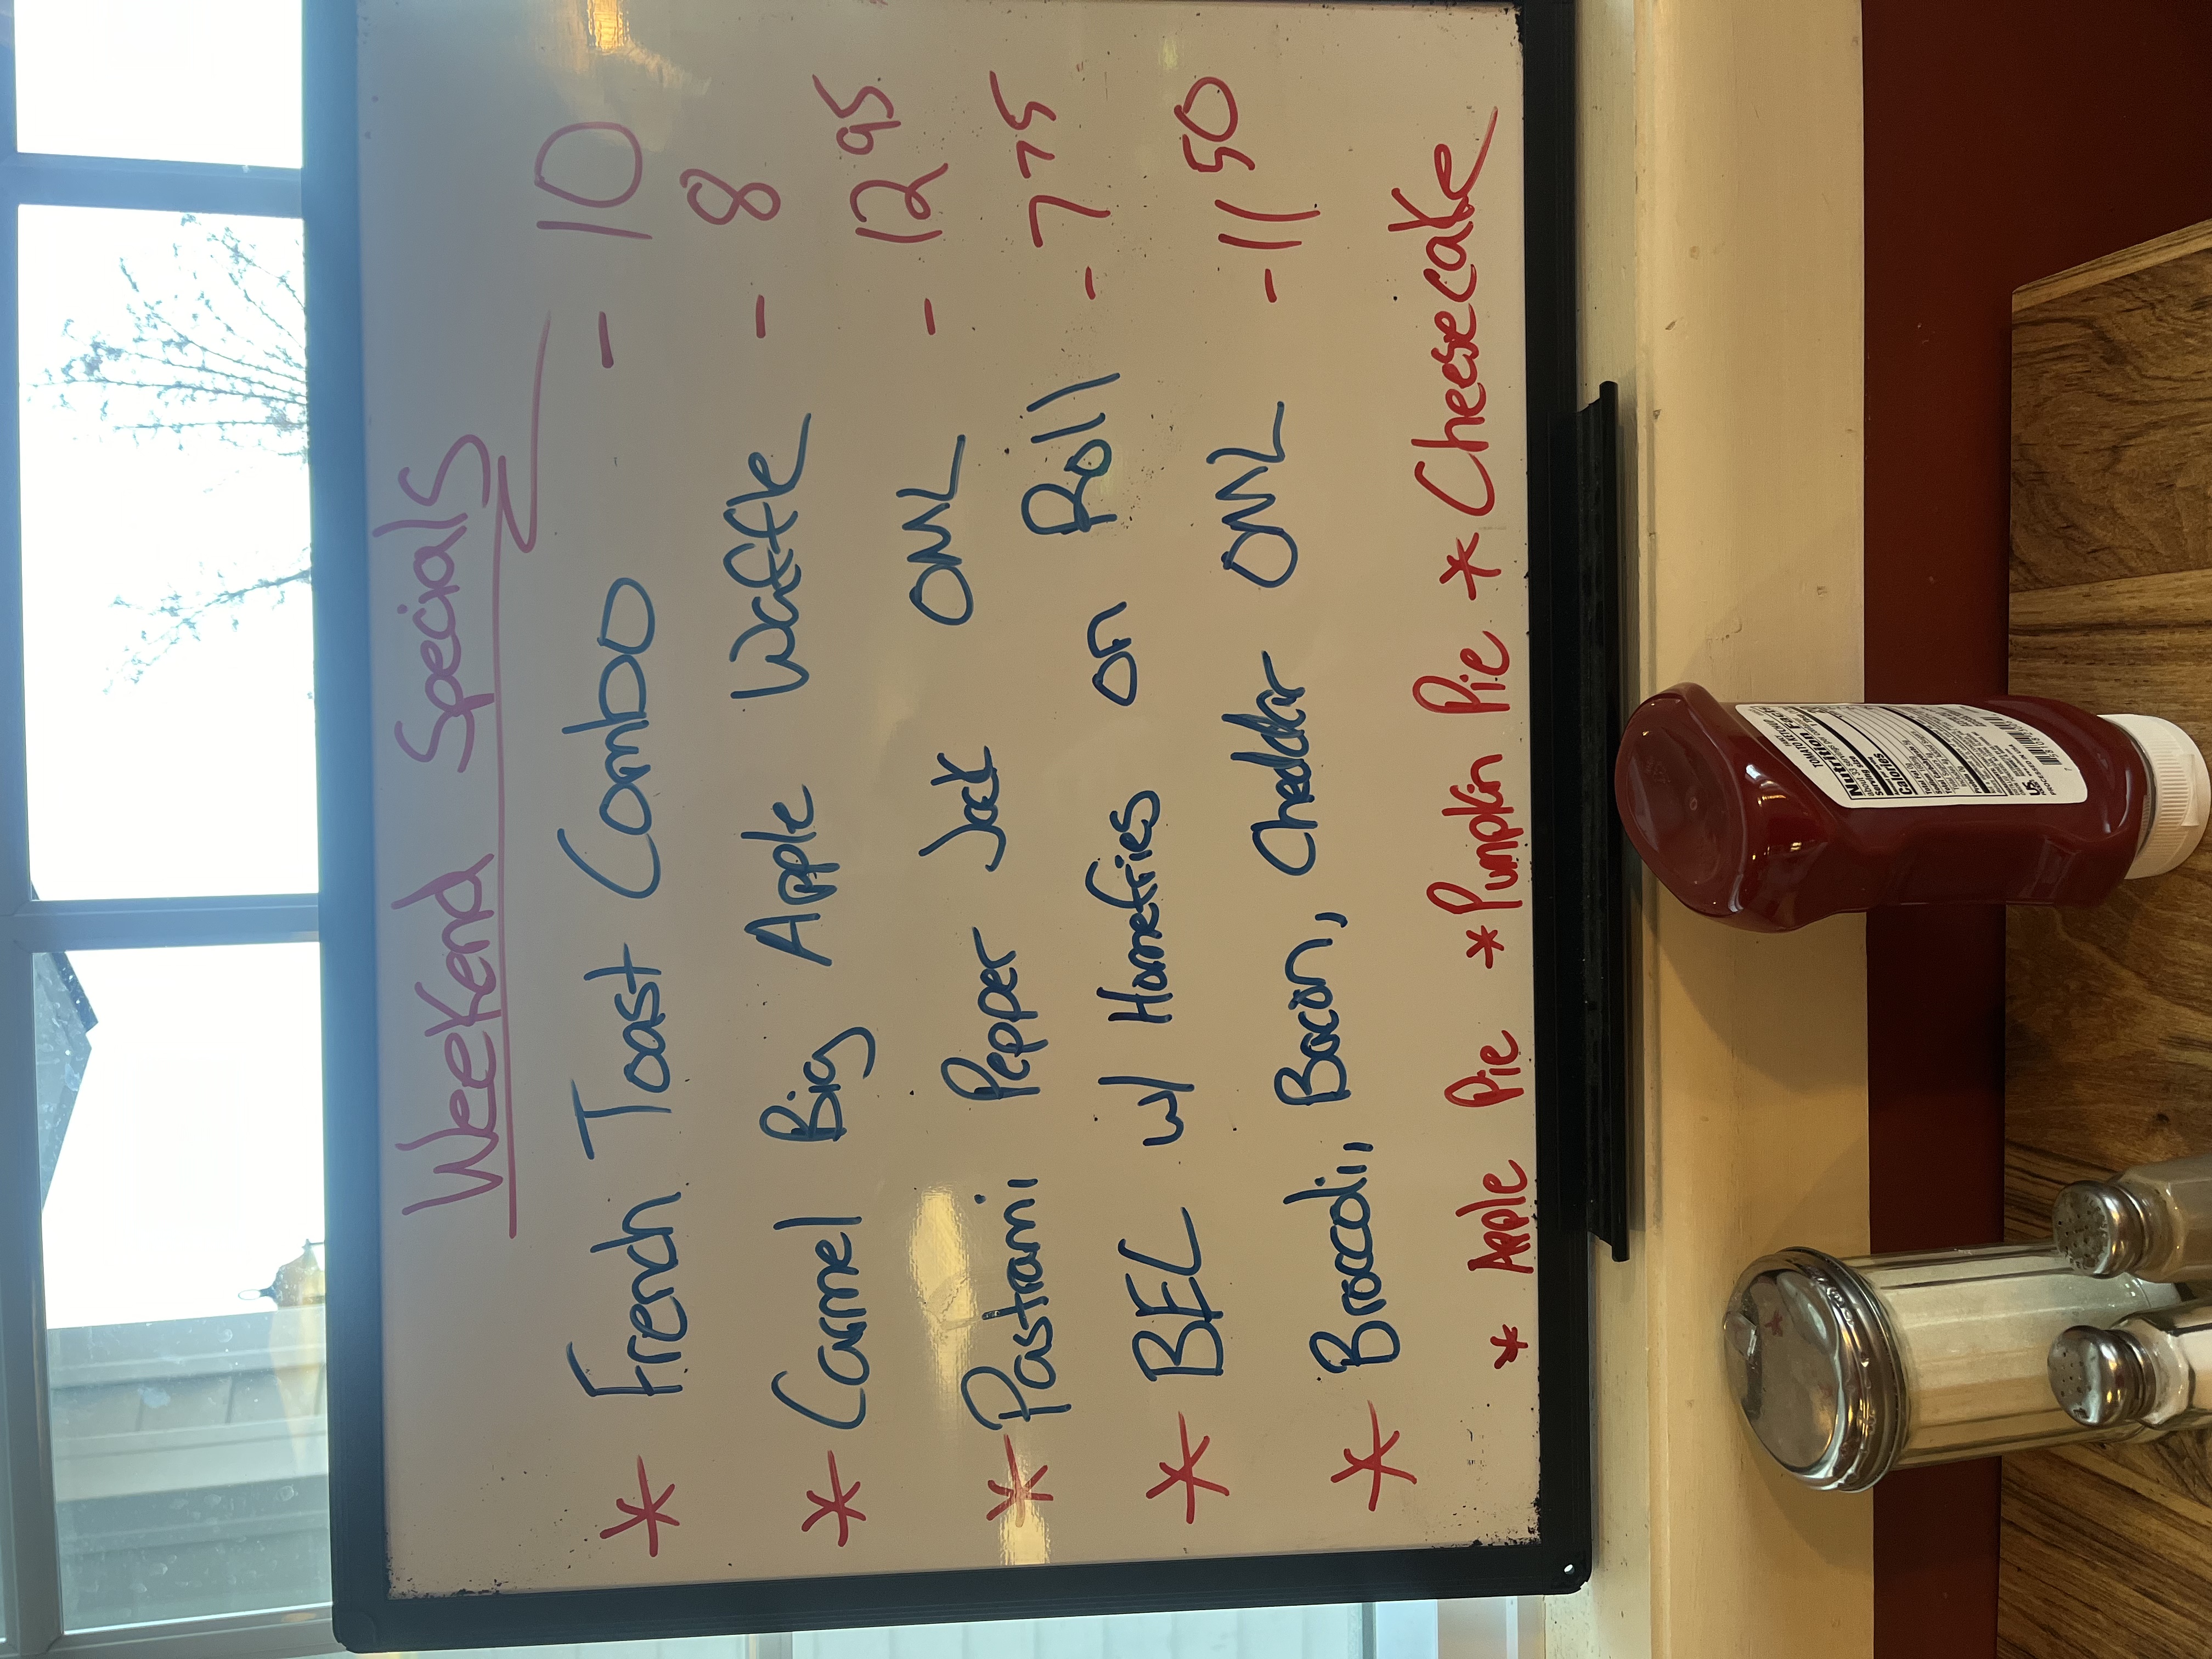 Weekend Specials
* French Toast Combo - 10
* Carmel Big Apple Waffle - 8
* Pastrami Pepper Jack OML - 12 95
* BEC w/ Homefries on Roll - 7 75
* Broccoli, Bacon, Cheddar OML - 11 50
* Apple Pie * Pumpkin Pie * Cheesecake
TOMATO KETCHUP
Nutrition Facts
Calories